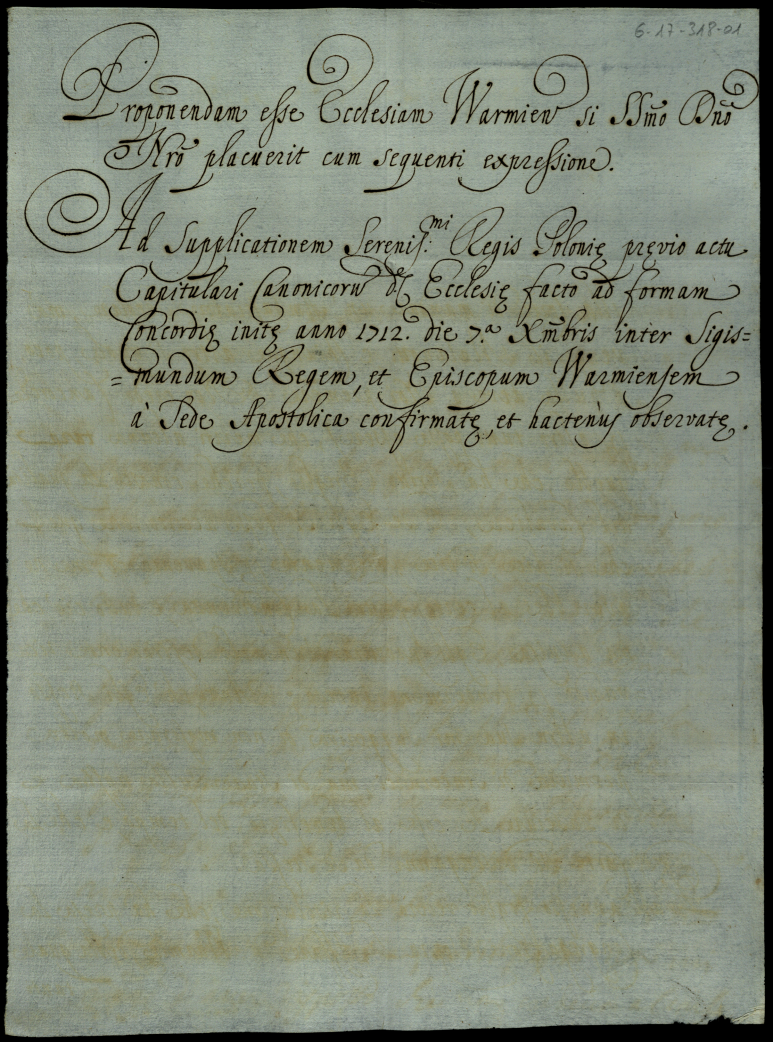 6-17-318-01
Proponendam esse Ecclesiam Warmien si SSm̃o Dnõ
Nrõ placuerit cum sequenti expressione.
Ad supplicationem Sereniss:mi Regis Polonię pręvio actu
Capitulari Canonicorũ dc̃ę Ecclesię facto ad formam
Concordię initę anno 1712. die 7.a Xm̃bris inter Sigis=
=mundum Regem, et Episcopum Warmiensem
à Sede Apostolica confirmatę, et hactenùs observatę.